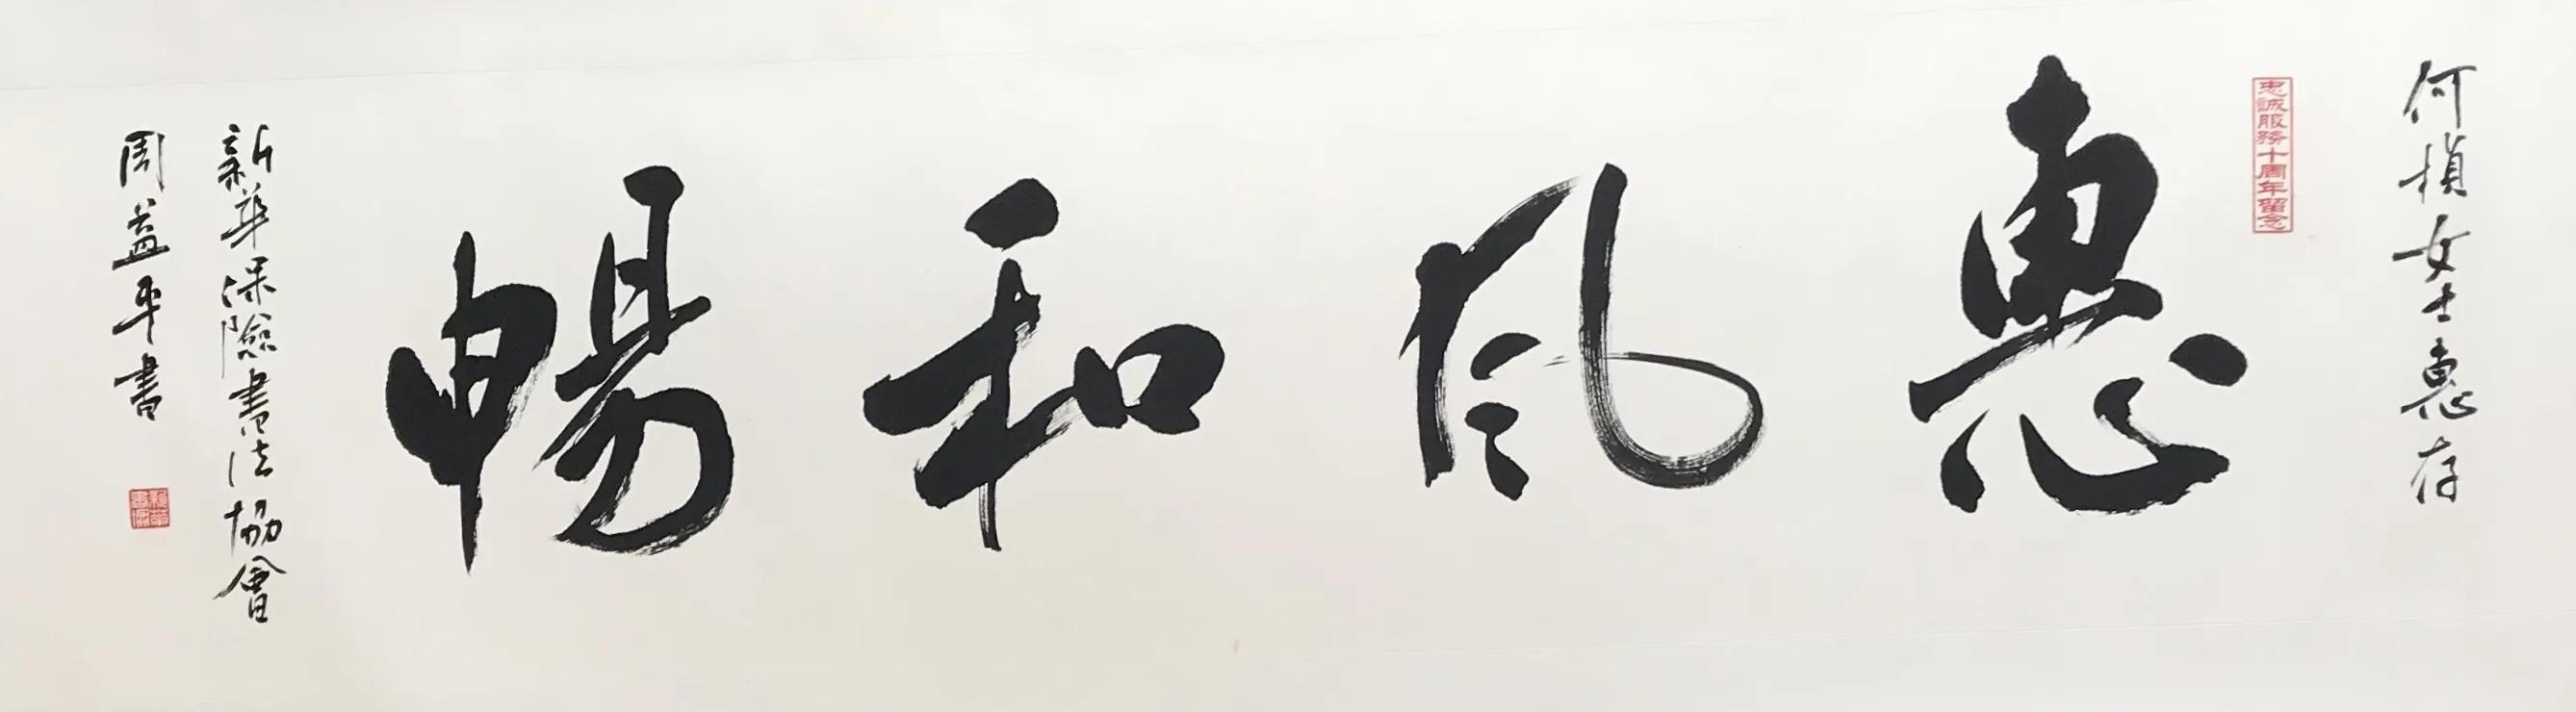 何楨女士惠存
忠誠服務十周年留念
惠風和暢
新華保險書法協會
周益平書